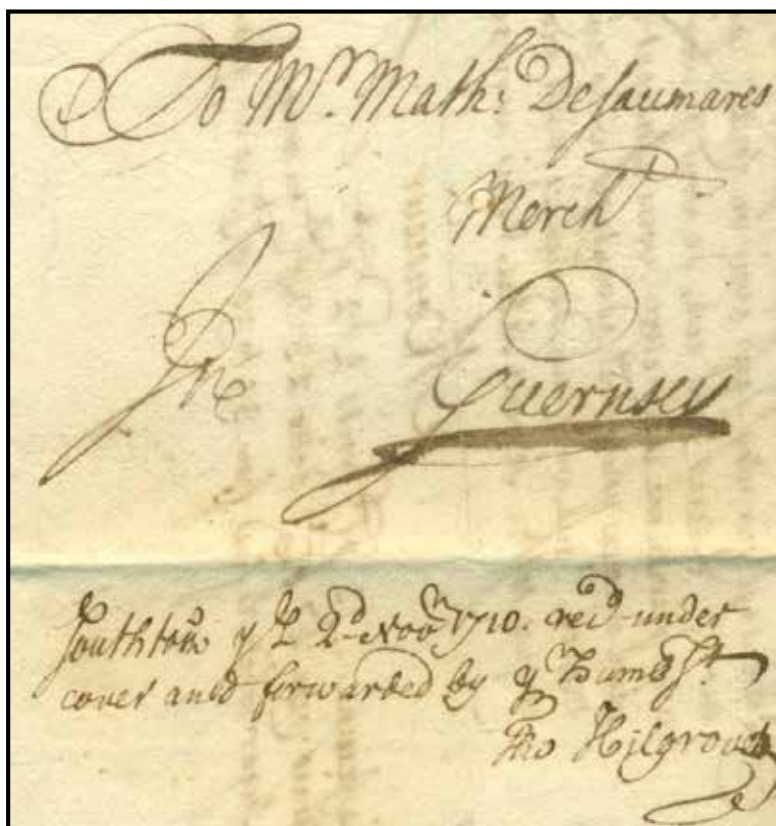 To Mr. Math: DeSaumares
Mercht
In Guernsey
Southton ye 2d Novr 1710. recd under
cover and forwarded by yr Humb St
Tho Hilgrove